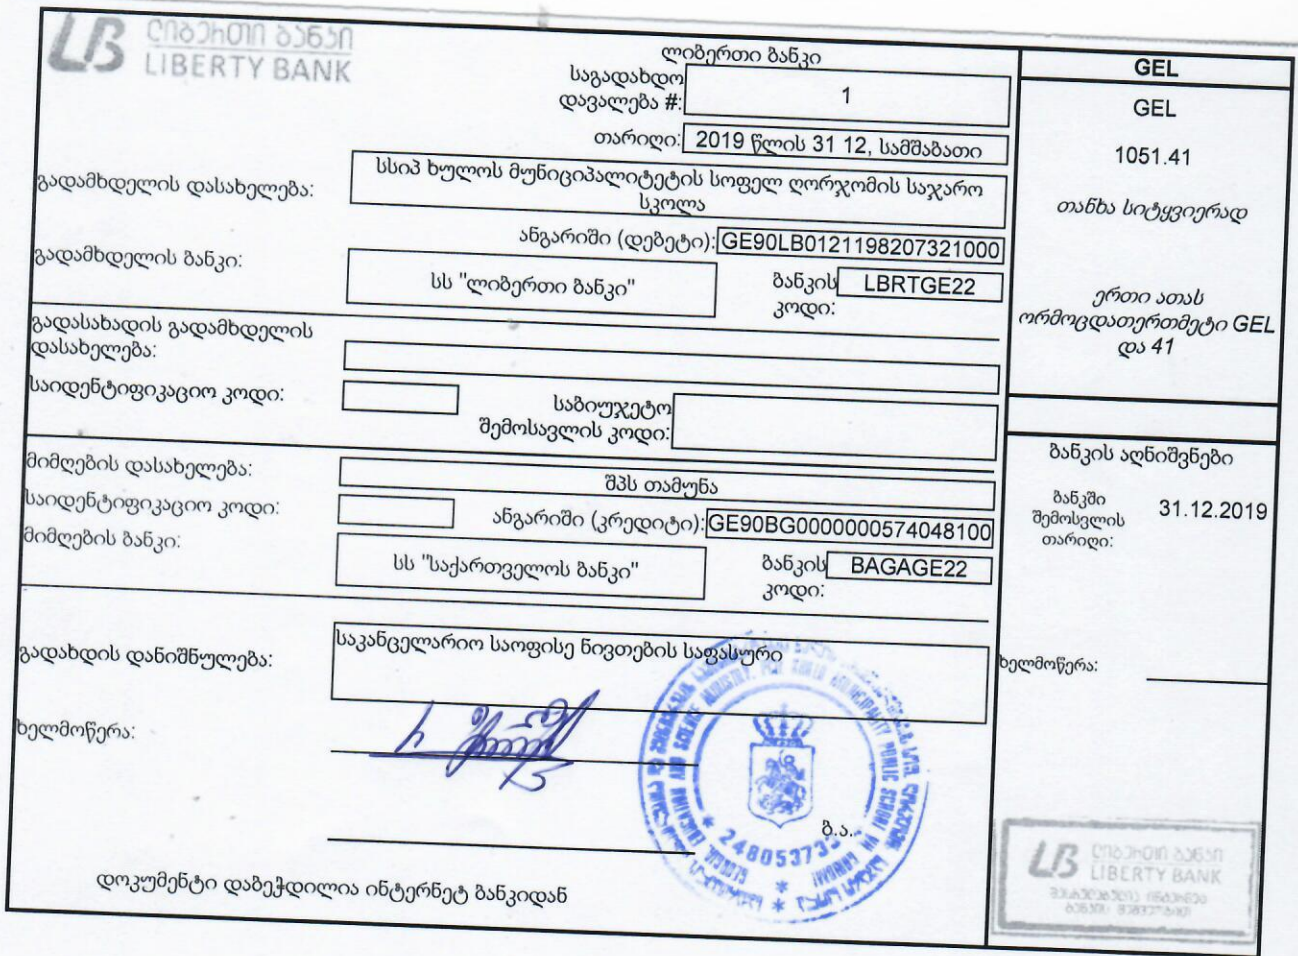 LB ლიბერთი ბანკი
LIBERTY BANK
ლიბერთი ბანკი
საგადახდო
დავალება #:
1
თარიღი: 2019 წლის 31 12, სამშაბათი
გადამხდელის დასახელება:
სსიპ ხულოს მუნიციპალიტეტის სოფელ ღორჯომის საჯარო
სკოლა
ანგარიში (დებეტი): GE90LB0121198207321000
გადამხდელის ბანკი:
სს "ლიბერთი ბანკი"
ბანკის
კოდი:
LBRTGE22
გადასახადის გადამხდელის
დასახელება:
საიდენტიფიკაციო კოდი:
საბიუჯეტო
შემოსავლის კოდი:
მიმღების დასახელება:
შპს თამუნა
საიდენტიფიკაციო კოდი:
ანგარიში (კრედიტი): GE90BG0000000574048100
მიმღების ბანკი:
სს "საქართველოს ბანკი"
ბანკის
კოდი:
BAGAGE22
გადახდის დანიშნულება:
საკანცელარიო საოფისე ნივთების საფასური
ხელმოწერა:
ბ.ა.
დოკუმენტი დაბეჭდილია ინტერნეტ ბანკიდან
GEL
GEL
1051.41
თანხა სიტყვიერად
ერთი ათას
ორმოცდათერთმეტი GEL
და 41
ბანკის აღნიშვნები
ბანკში
შემოსვლის
თარიღი:
31.12.2019
ხელმოწერა:
AND SCIENCE
MUNICIPALITY PUBLIC SCHOOL
LB ლიბერთი ბანკი
LIBERTY BANK